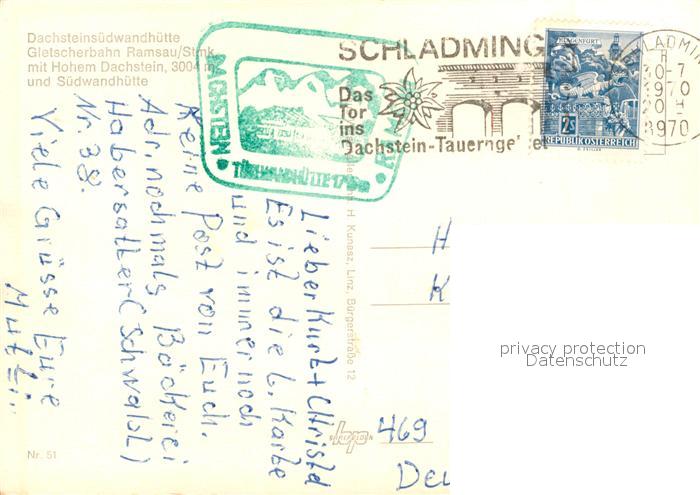 Dachsteinsüdwandhütte
Gletscherbahn Ramsau/Stmk.
mit Hohem Dachstein, 3004
und Südwandhütte
SCHLADMING
Das
Tor
ins
Dachstein-Tauerngebiet
DACHSTEIN
TÜRLWANDHÜTTE
KLAGENFURT
2s
REPUBLIK ÖSTERREICH
1970
Lieber Kurt + Christl
Es ist die 6. Karte
und immer noch
keine Post von Euch.
Adr. nochmals Bäckerei
Habersatter (Schwalbl)
Nr. 38.
Viele Grüsse Eure
Mutti.
H. Kunesz, Linz, Bürgerstraße 12
H
K
469
Deu
Nr. 51
privacy protection
Datenschutz